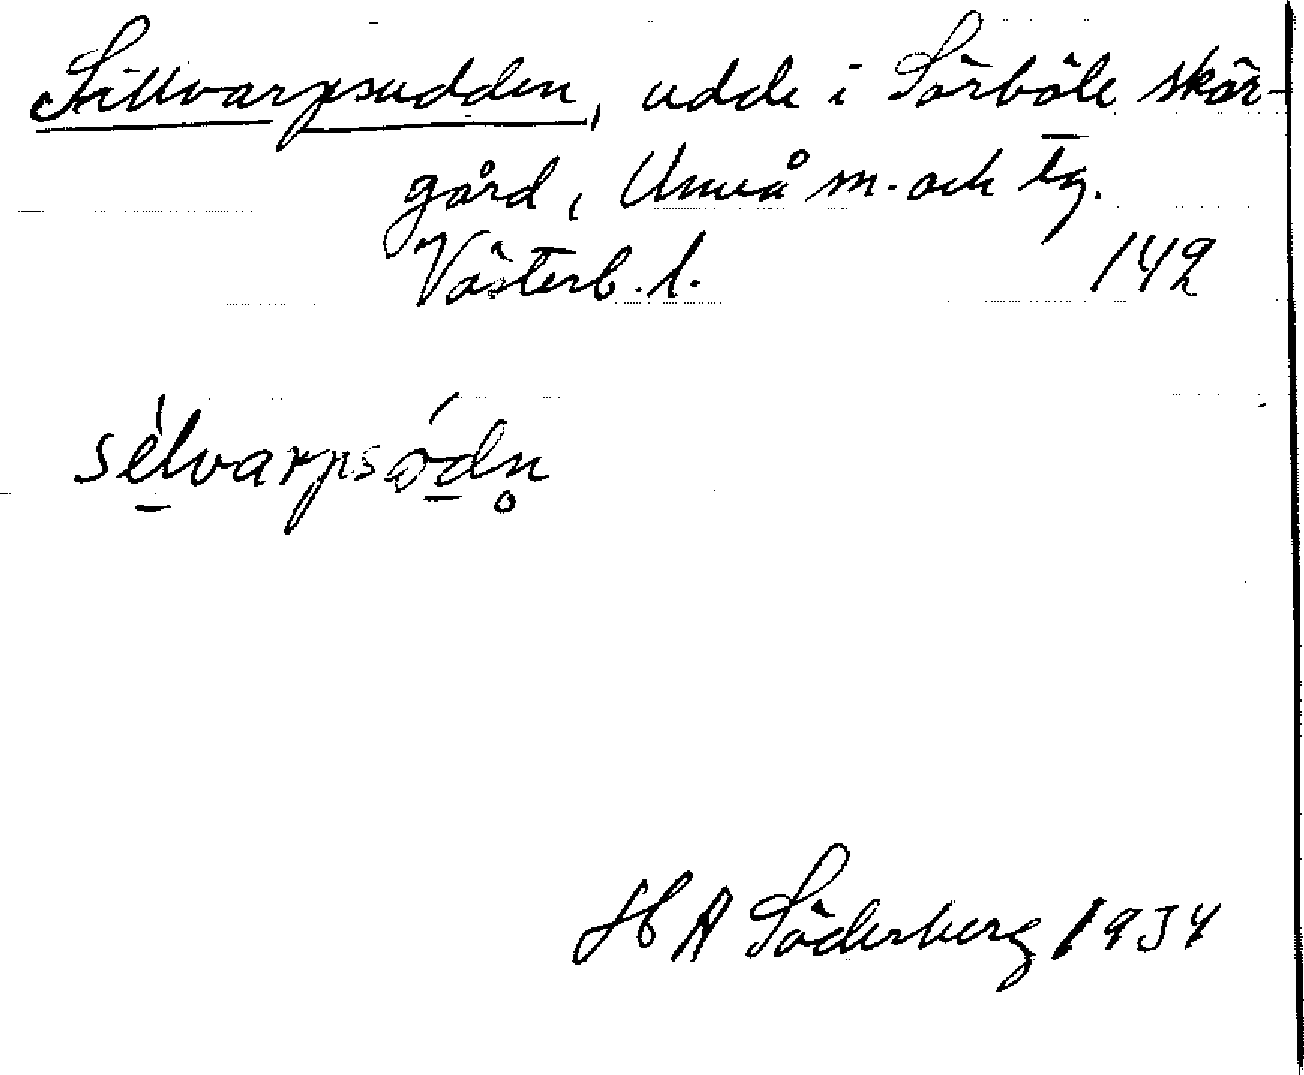 Sillvarpsudden, udde i Sörböle skär-
gård, Umeå m. och tg.
Västerb. l. 142
sèlvarpsódn̥
H A Söderberg 1934